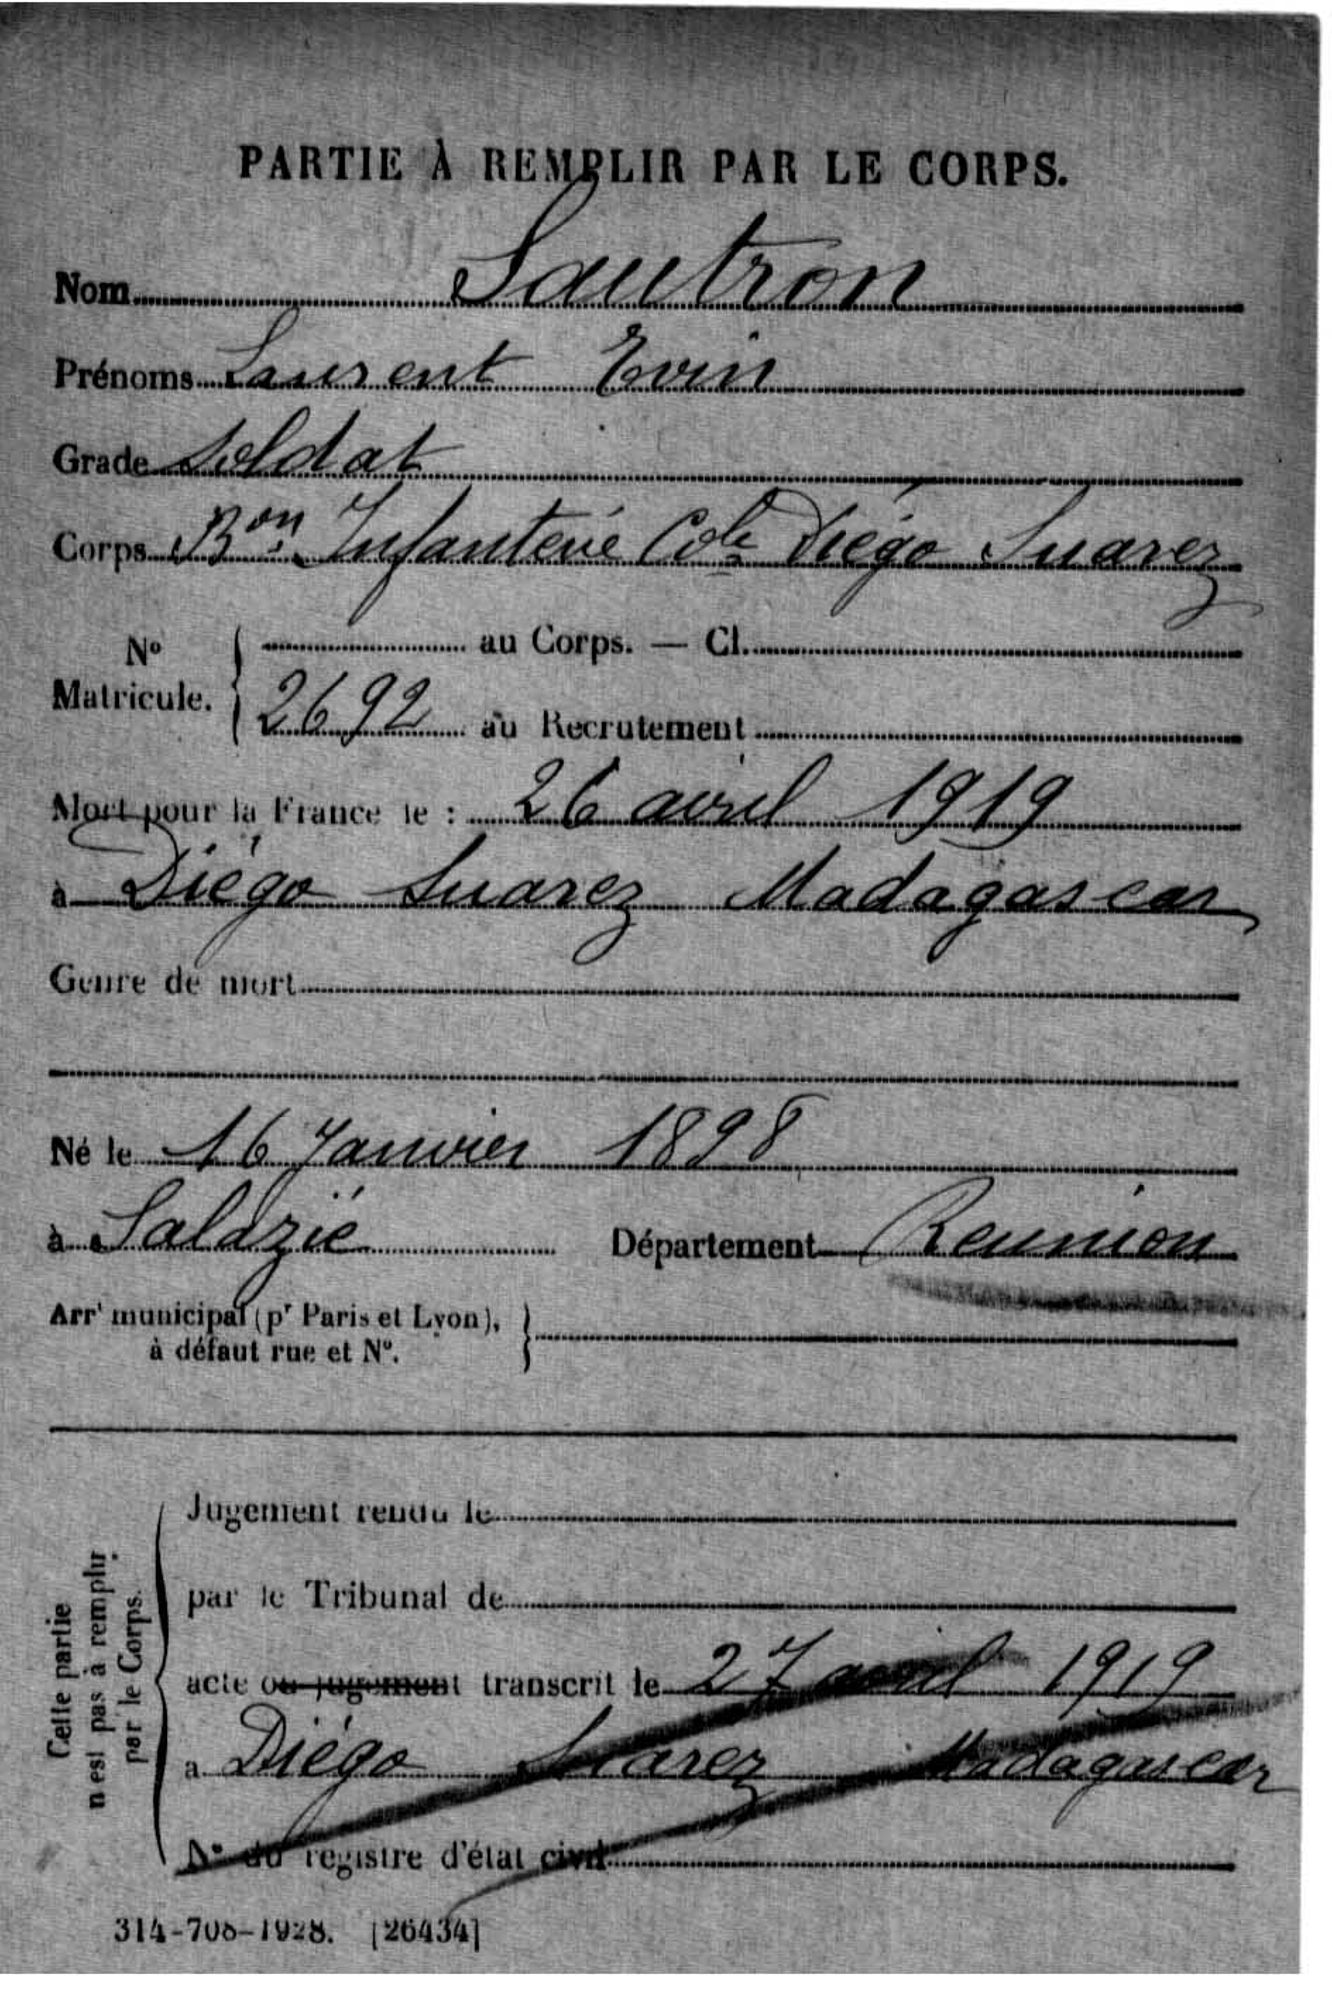 PARTIE À REMPLIR PAR LE CORPS.
Nom Sautron
Prénoms Laurent Evin
Grade Soldat
Corps Bon Infanterie Cole Diégo Suarez
No Matricule. { au Corps. — Cl.
2692 au Recrutement
Mort pour la France le : 26 avril 1919
à Diégo Suarez Madagascar
Genre de mort
Né le 16 Janvier 1898
à Salazie Département Reunion
Arrt municipal (pr Paris et Lyon),
à défaut rue et No.
Cette partie
n'est pas à remplir
par le Corps.
Jugement rendu le
par le Tribunal de
acte ou jugement transcrit le 27 avril 1919
a Diégo Suarez Madagascar
No du registre d'état civil
314-708-1928. [26434]